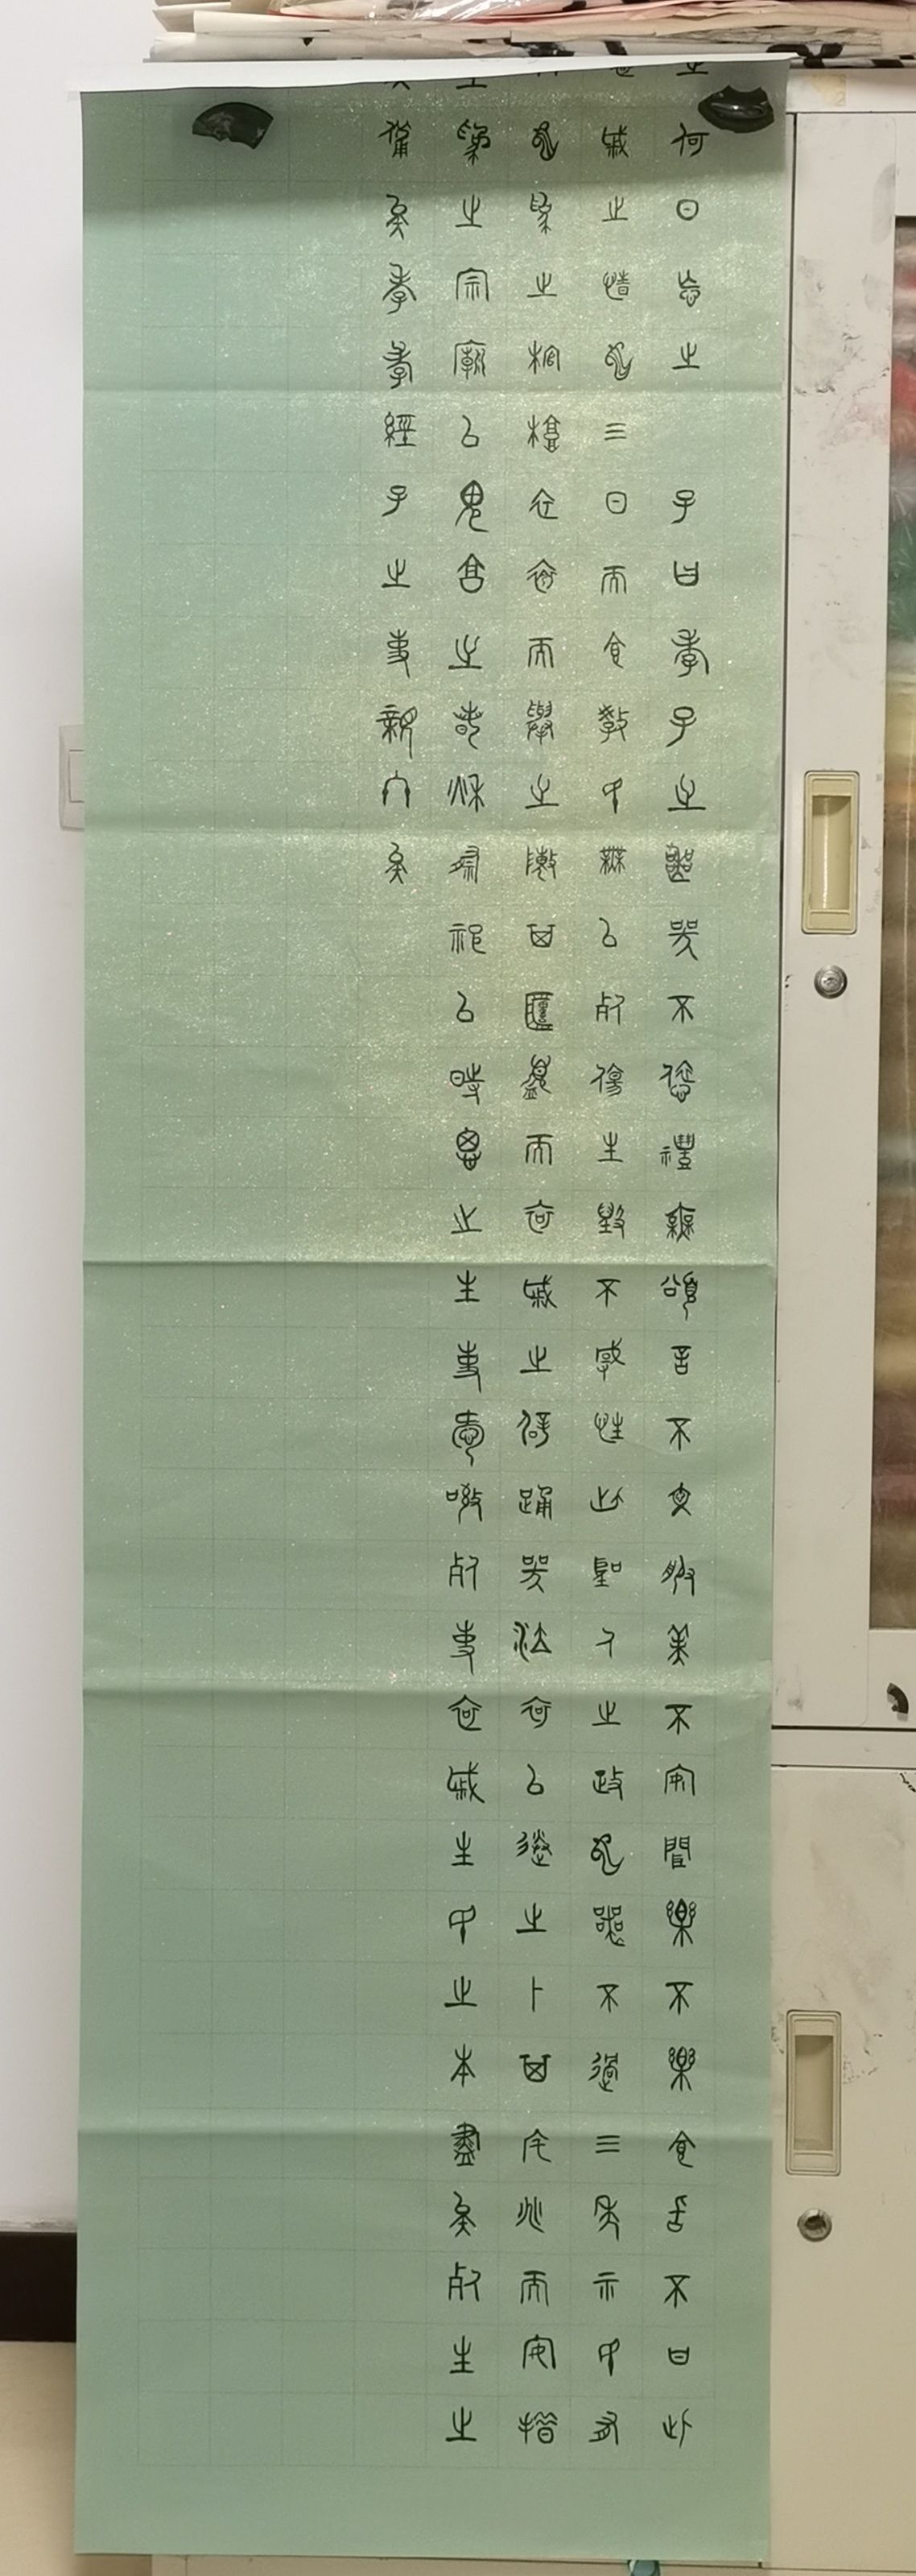 之何日忘之子曰孝子之喪哭不偯禮無容言不文服美不安聞樂不樂食旨不甘此
戚之情也三日而食教民無以死傷生毀不滅性此聖人之政也喪不過三年示民有
也為之棺槨衣衾而舉之陳其簠簋而哀戚之擗踊哭泣哀以送之卜其宅兆而安措
之為之宗廟以鬼享之春秋祭祀以時思之生事愛敬死事哀戚生民之本盡矣死生之
備矣孝孝經子之事親終矣